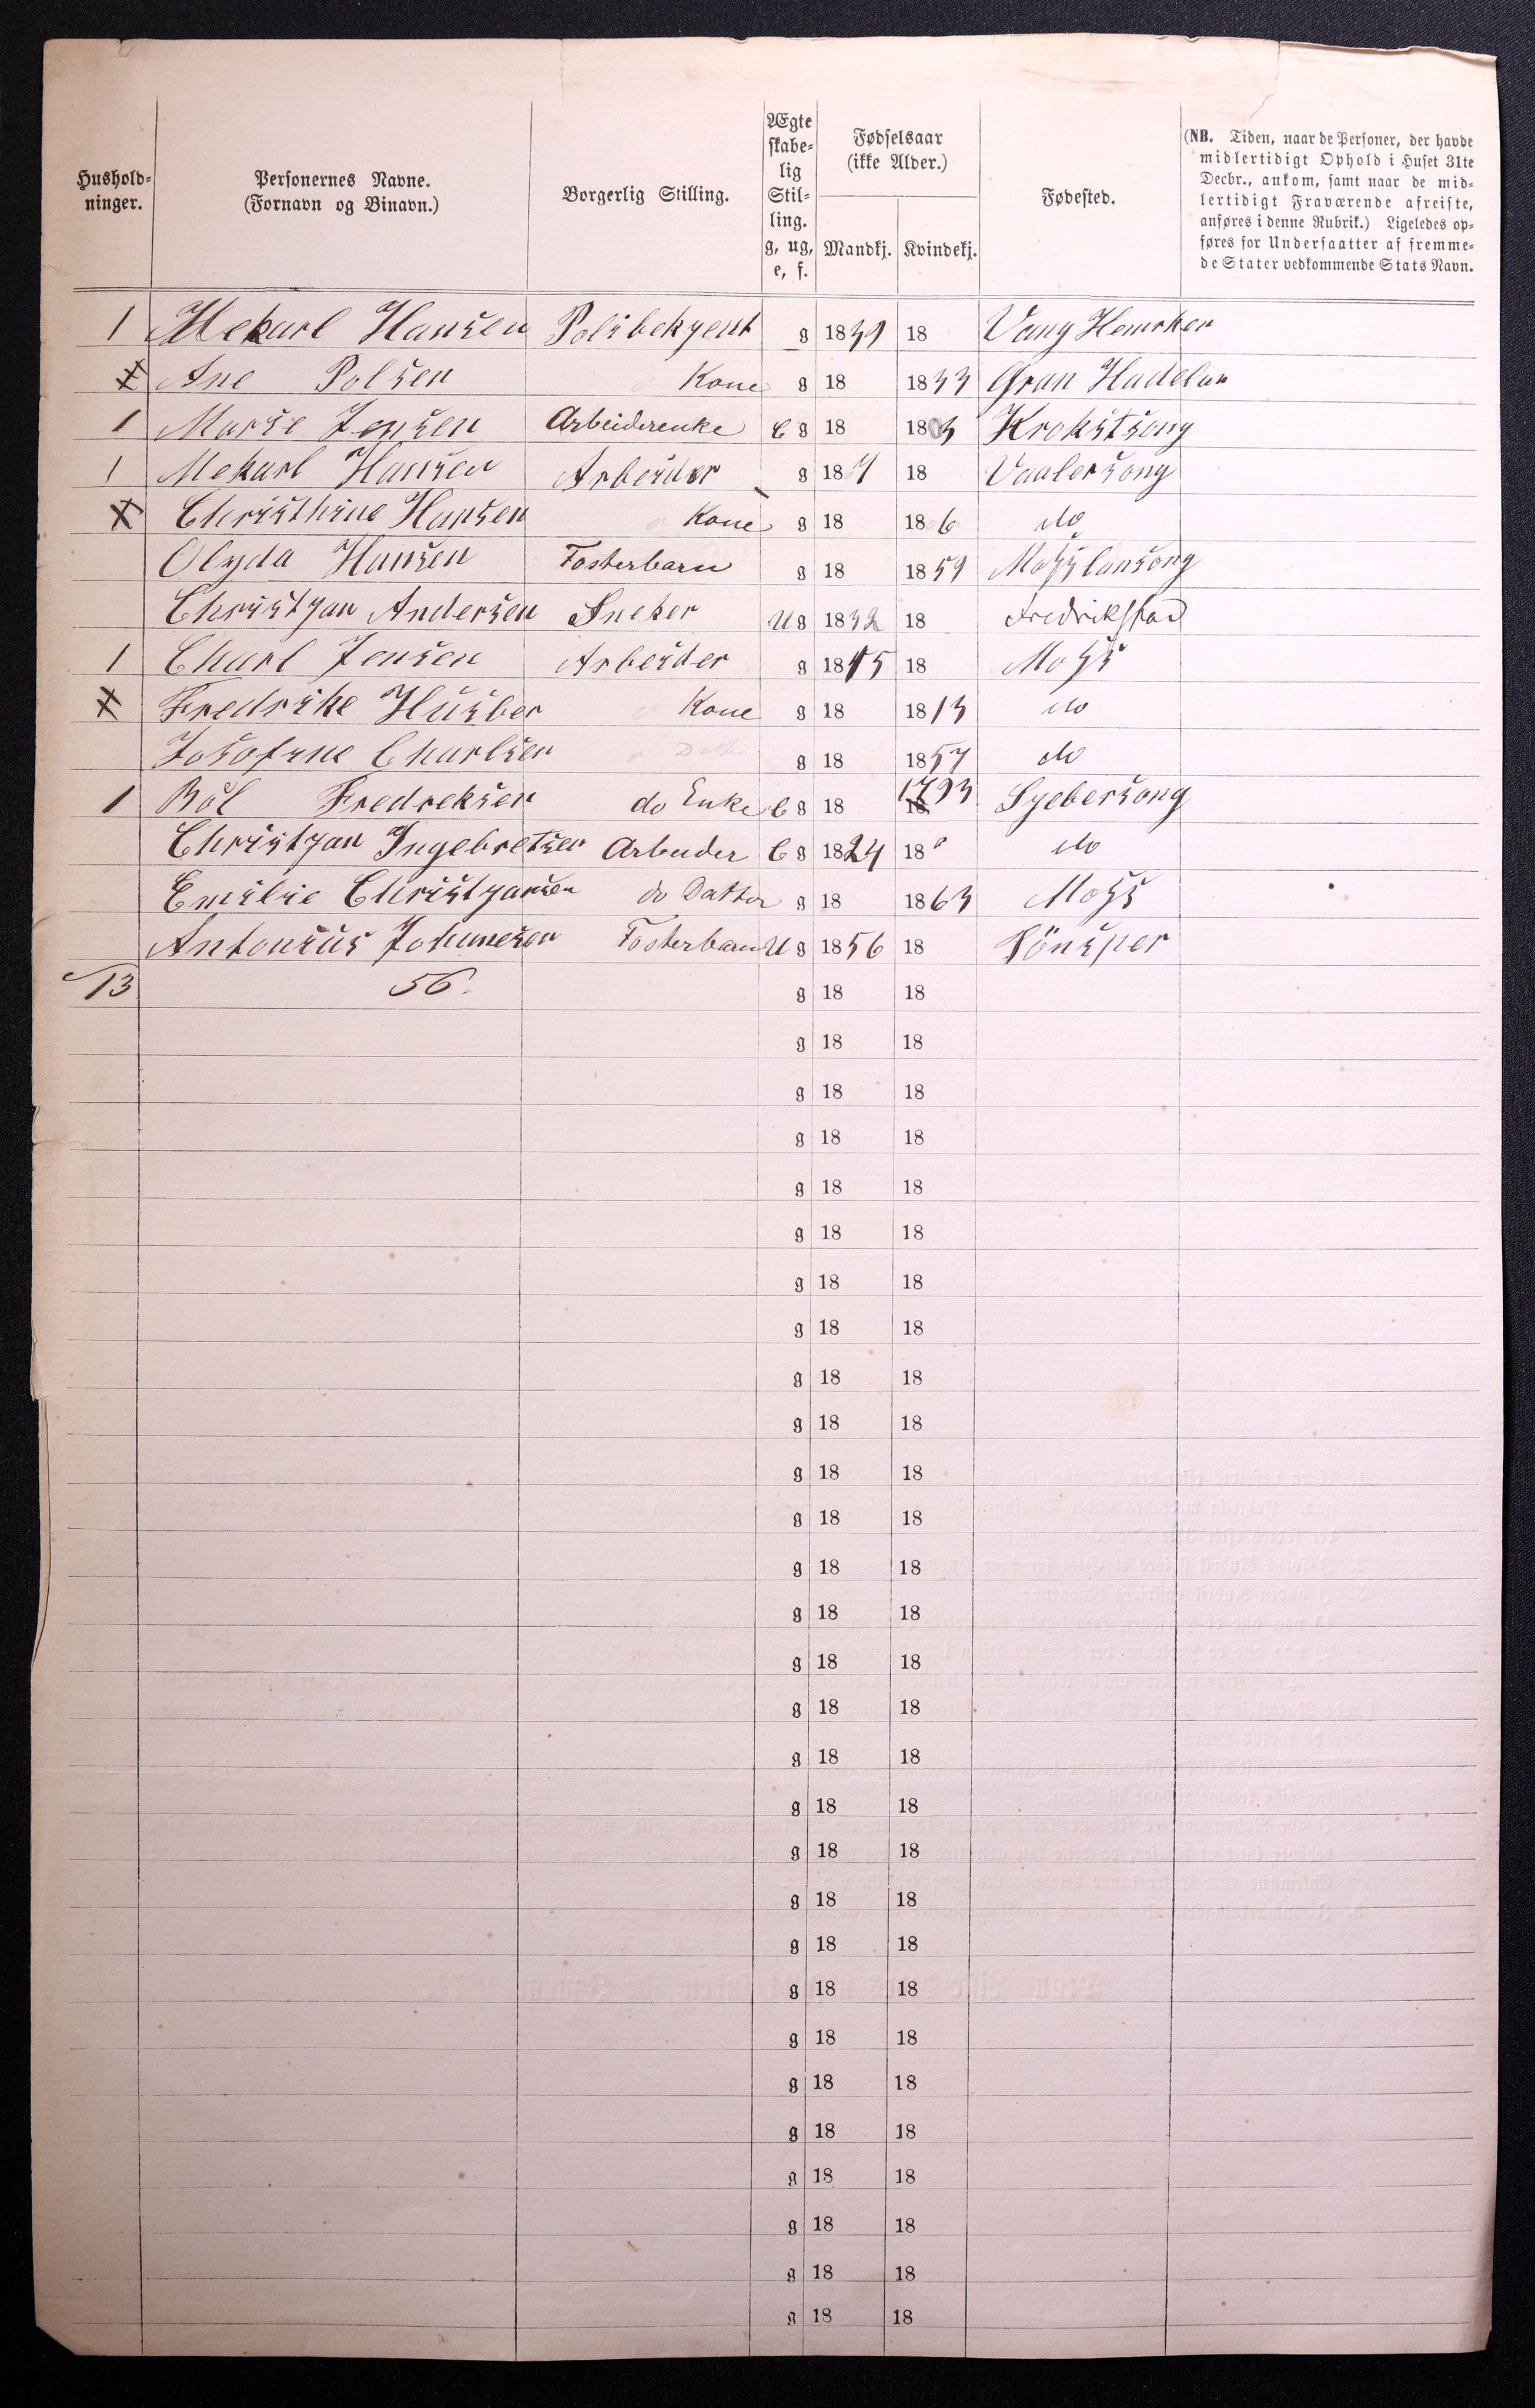 Hushold-
ninger.
Personernes Navne.
(Fornavn og Binavn.)
Borgerlig Stilling.
Ægte
skabe-
lig
Stil-
ling.
g, ug,
e, f.
Fødselsaar
(ikke Alder.)
Mandkj. Kvindekj.
Fødested.
(NB. Tiden, naar de Personer, der havde
midlertidigt Ophold i Huset 31te
Decbr., ankom, samt naar de mid-
lertidigt Fraværende afreiste,
anføres i denne Rubrik.) Ligeledes op-
føres for Undersaatter af fremme-
de Stater vedkommende Stats Navn.
1 Mekarl Hansen Polisbekyent g 1839 18 Vang Hemrken
Ane Polsen Kone g 18 1833 Gran Hadelan
1 Marie Jensen Arbeiderenke E g 18 1803 Krokstsong
1 Mekarl Hansen Arbeider g 187 18 Vaalersong
Christhine Hansen Kone g 18 186 do
Olyda Hansen Fosterbarn g 18 1859 Mosslansong
Christjan Andersen Sneker U g 1832 18 Fredrikstad
1 Charl Jensen Arbeider g 1815 18 Moss
Fredrike Husber Kone g 18 1813 do
Josofine Charlsen g 18 1857 do
1 Bol Fredreksen do Enke E g 18 1793 Syebersong
Christjan Ingebretsen Arbeider E g 1824 18 do
Emilie Christjansen do Datter g 18 1863 Moss
Antonius Johunesen Fosterbarn U g 1856 18 Tönsper
13 56. g 18 18
g 18 18
g 18 18
g 18 18
g 18 18
g 18 18
g 18 18
g 18 18
g 18 18
g 18 18
g 18 18
g 18 18
g 18 18
g 18 18
g 18 18
g 18 18
g 18 18
g 18 18
g 18 18
g 18 18
g 18 18
g 18 18
g 18 18
g 18 18
g 18 18
g 18 18
g 18 18
g 18 18
g 18 18